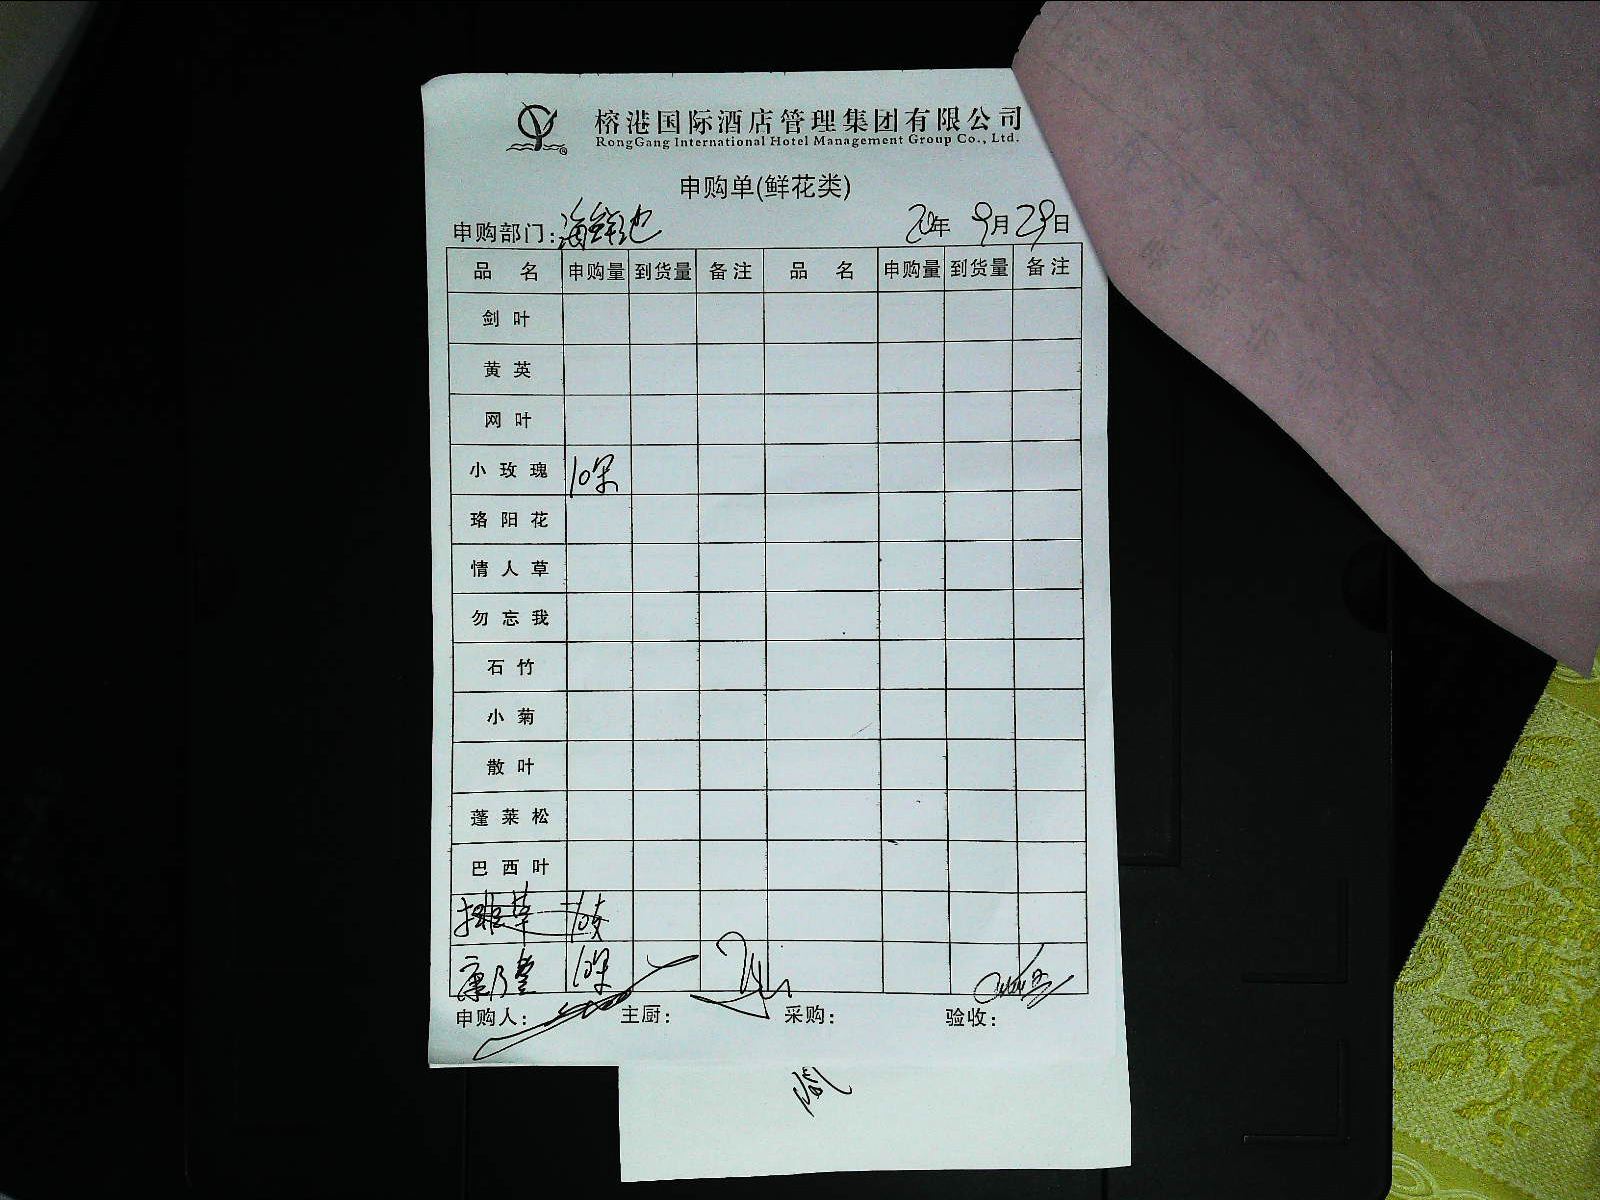 榕港国际酒店管理集团有限公司
RongGang International Hotel Management Group Co., Ltd.
申购单(鲜花类)
申购部门：海鲜池 20年 9月29日
品 名 申购量 到货量 备注 品 名 申购量 到货量 备注
剑叶
黄英
网叶
小玫瑰 10朵
珞阳花
情人草
勿忘我
石竹
小菊
散叶
蓬莱松
巴西叶
排草
康乃馨 10朵
申购人： 主厨： 采购： 验收：